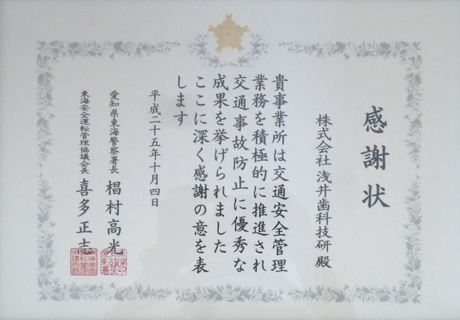 感謝状
株式会社 浅井歯科技研 殿
貴事業所は交通安全管理
業務を積極的に推進され
交通事故防止に優秀な
成果を挙げられました
ここに深く感謝の意を表
します
平成二十五年十月四日
愛知県東海警察署長 椙村高光
東海安全運転管理協議会長 喜多正志